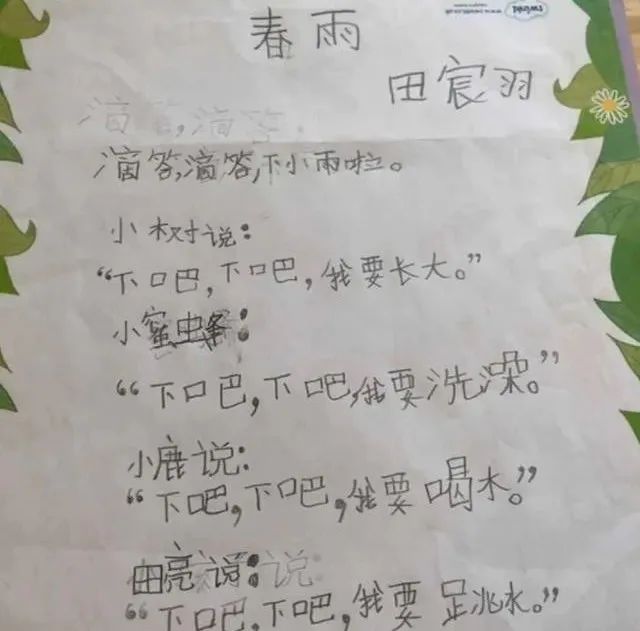 twinkl
春雨
田宸羽
滴答,滴答,
滴答,滴答,下小雨啦。
小树说:
“下吧,下吧,我要长大。”
小蜜蜂:
“下吧,下吧,我要洗澡。”
小鹿说:
“下吧,下吧,我要喝水。”
田亮说:说
“下吧,下吧,我要跳水。”